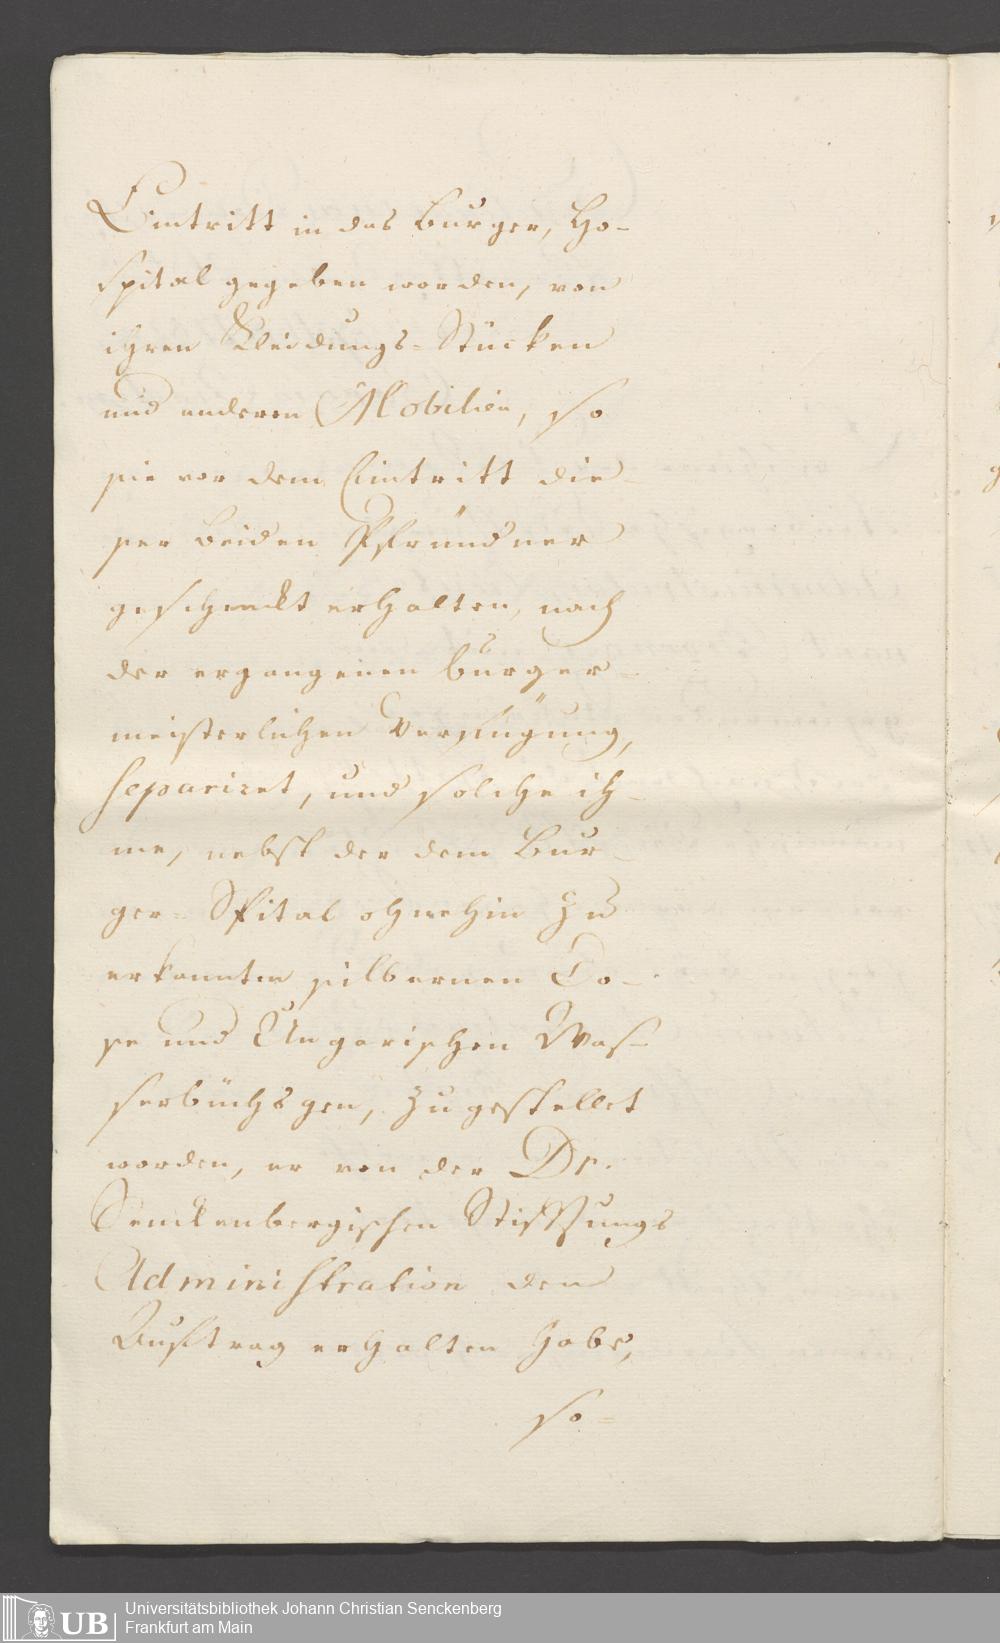 Eintritt in das Burger, Ho-
spital gegeben worden, von
ihren Kleidungs-Stücken
und anderen Mobilien, so
sie vor dem Eintritt die-
ser beiden Pfründner
geschenckt erhalten, nach
der ergangenen burger-
meisterlichen Verfügung,
separiret, und solche ih-
me, nebst der dem Bur-
ger-Spital ohnehin zu
erkannten silbernen Do-
se und Ungarischen Was-
serbüchsgen, zugestellet
worden, er von der Dr.
Senckenbergischen Stifftungs
Administration den
Auftrag erhalten habe,
so-
UB Universitätsbibliothek Johann Christian Senckenberg
Frankfurt am Main